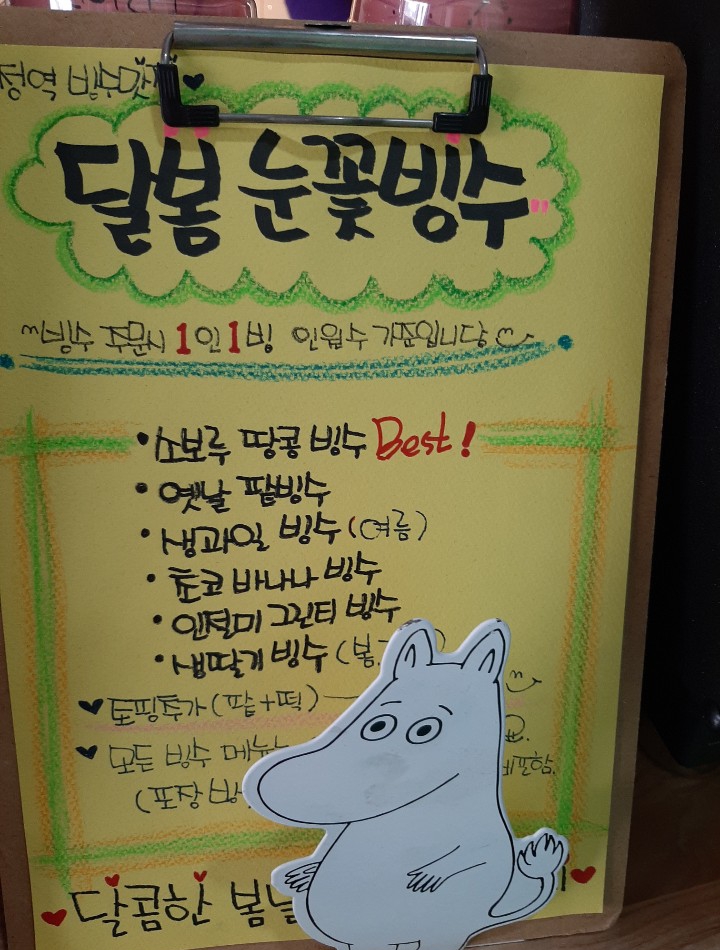 빙수맛집
달봄 눈꽃빙수
빙수 주문시 1인 1빙 인원수 기준입니다
소보루 땅콩 빙수 Best!
옛날 팥빙수
생과일 빙수 (여름)
쵸코 바나나 빙수
인절미 그린티 빙수
생딸기 빙수 (봄
토핑추가 (팥+떡)
모든 빙수 메뉴는
(포장
달콤한